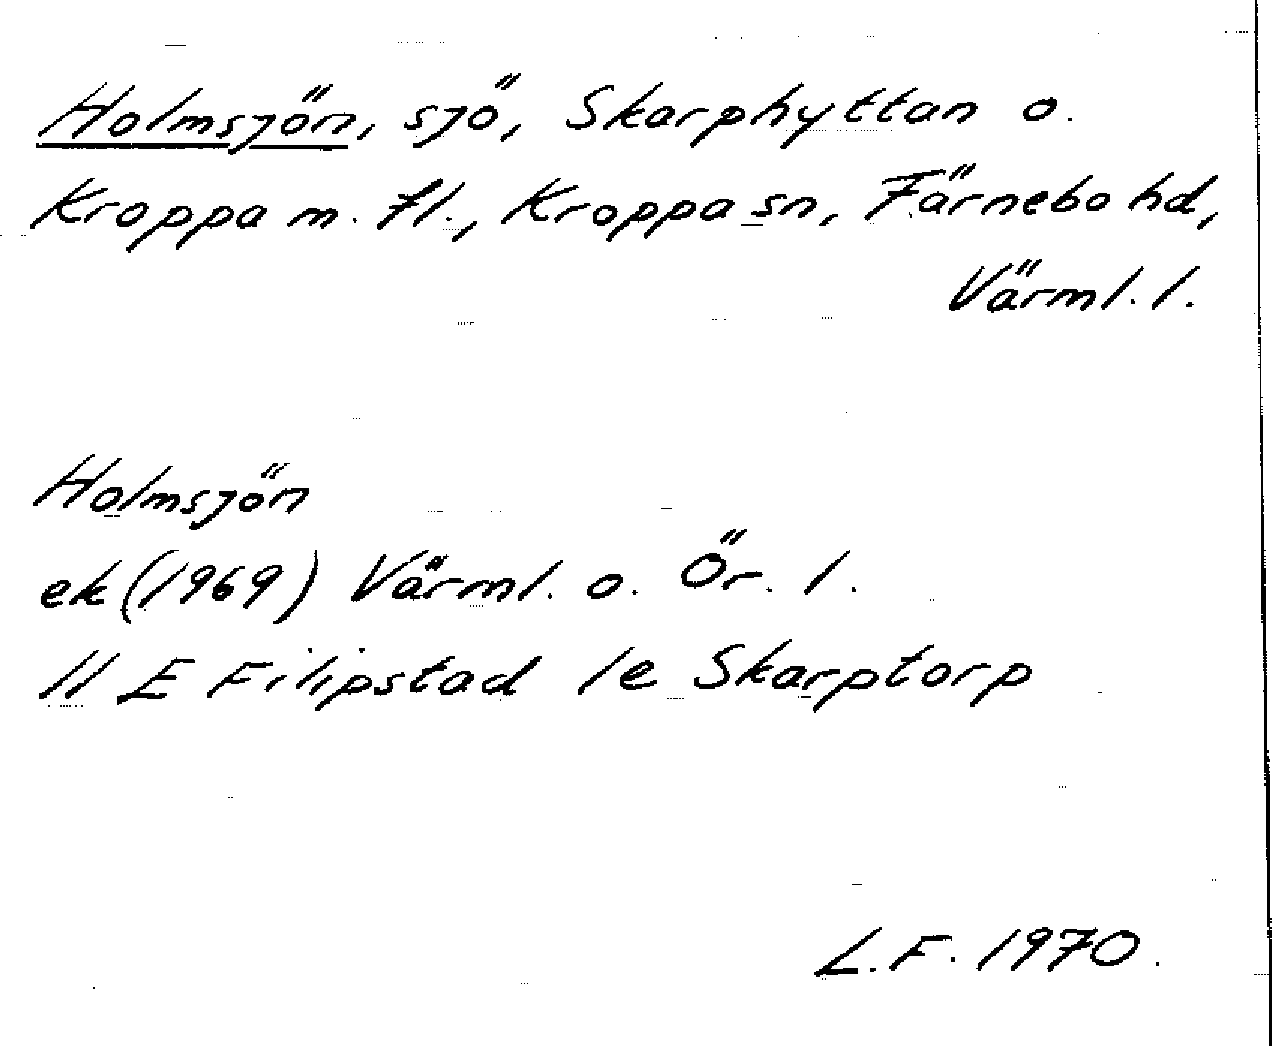 Holmsjön, sjö, Skarphyttan o.
Kroppa m. fl., Kroppa sn, Färnebo hd,
Värml. l.
Holmsjön
ek (1969) Värml. o. Ör. l.
11 E Filipstad 1e Skarptorp
L.F. 1970.